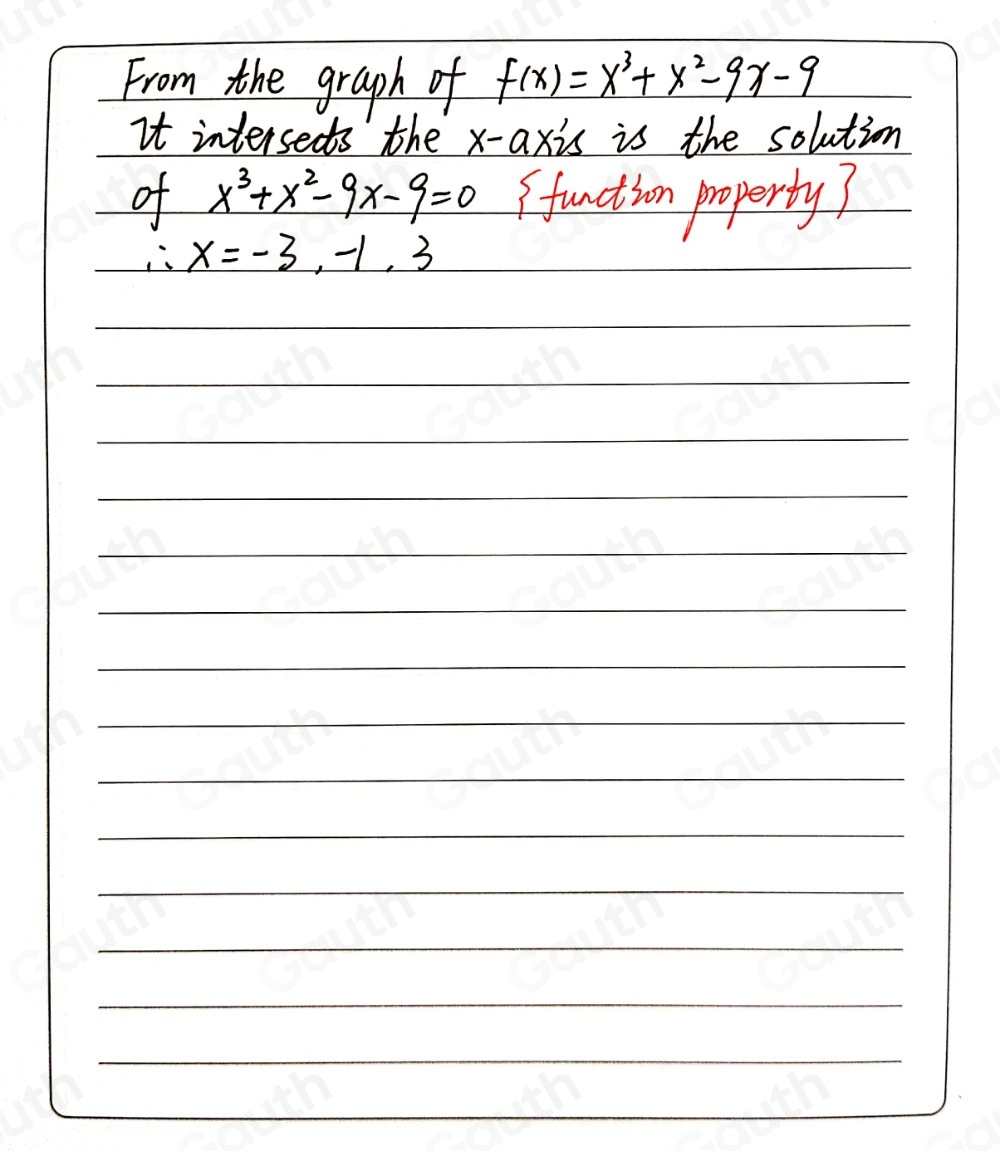 From the graph of f(x) = x³ + x² - 9x - 9
It intersects the x-axis is the solution
of x³ + x² - 9x - 9 = 0 {function property}
∴ x = -3, -1, 3
Gauth